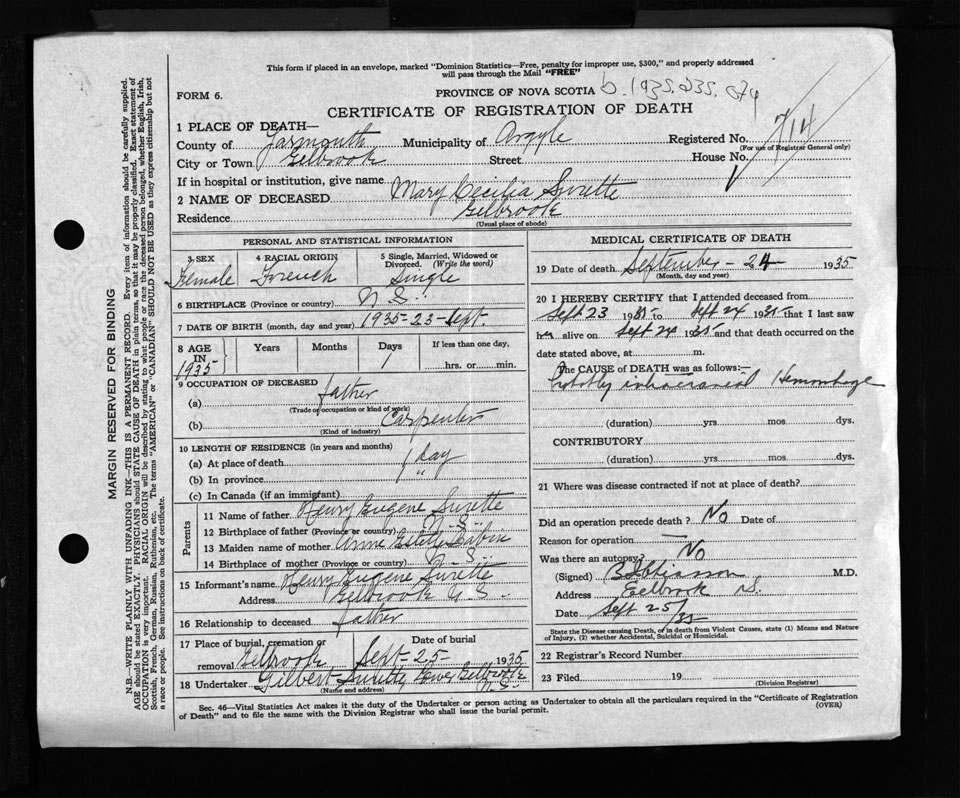 This form if placed in an envelope, marked "Dominion Statistics—Free, penalty for improper use, $300," and properly addressed
will pass through the Mail "FREE"
FORM 6.
PROVINCE OF NOVA SCOTIA b. 1935.235.
CERTIFICATE OF REGISTRATION OF DEATH
1 PLACE OF DEATH—
County of Yarmouth Municipality of Argyle Registered No. 714
(For use of Registrar General only)
City or Town Eelbrook Street House No.
If in hospital or institution, give name
2 NAME OF DECEASED Mary Cecilia Surette
Residence Eelbrook
(Usual place of abode)
PERSONAL AND STATISTICAL INFORMATION
3 SEX 4 RACIAL ORIGIN 5 Single, Married, Widowed or Divorced. (Write the word)
Female French Single
6 BIRTHPLACE (Province or country) N.S.
7 DATE OF BIRTH (month, day and year) 1935-23-Sept.
8 AGE IN Years Months Days If less than one day,
1935 1 hrs. or min.
9 OCCUPATION OF DECEASED
(a) father
(Trade or occupation or kind of work)
(b) Carpenter
(Kind of industry)
10 LENGTH OF RESIDENCE (in years and months)
(a) At place of death 1 day
(b) In province "
(c) In Canada (if an immigrant)
Parents
11 Name of father Henry Eugene Surette
12 Birthplace of father (Province or country) N.S.
13 Maiden name of mother Anne
14 Birthplace of mother (Province or country) N.S.
15 Informant's name Henry Eugene Surette
Address Eelbrook N.S.
16 Relationship to deceased father
17 Place of burial, cremation or Date of burial
removal Eelbrook Sept-25 1935
18 Undertaker Gilbert Surette Lower Eelbrook
(Name and address) N.S.
MEDICAL CERTIFICATE OF DEATH
19 Date of death September - 24 1935
(Month, day and year)
20 I HEREBY CERTIFY that I attended deceased from
Sept 23 1935 to Sept 24 1935 that I last saw
her alive on Sept 24 1935 and that death occurred on the
date stated above, at m.
The CAUSE of DEATH was as follows:—
intracranial Hemorrhage
(duration) yrs. mos. dys.
CONTRIBUTORY
(duration) yrs. mos. dys.
21 Where was disease contracted if not at place of death?
Did an operation precede death? No Date of
Reason for operation —
Was there an autopsy? No
(Signed) M.D.
Address Eelbrook N.S.
Date Sept 25/35
State the Disease causing Death, or in death from Violent Causes, state (1) Means and Nature
of Injury, (2) whether Accidental, Suicidal or Homicidal.
22 Registrar's Record Number
23 Filed 19
(Division Registrar)
Sec. 46—Vital Statistics Act makes it the duty of the Undertaker or person acting as Undertaker to obtain all the particulars required in the "Certificate of Registration
of Death" and to file the same with the Division Registrar who shall issue the burial permit. (OVER)
MARGIN RESERVED FOR BINDING
N.B.—WRITE PLAINLY WITH UNFADING INK—THIS IS A PERMANENT RECORD. Every item of information should be carefully supplied.
AGE should be stated EXACTLY. PHYSICIANS should STATE CAUSE OF DEATH in plain terms, so that it may be properly classified. Exact statement of
OCCUPATION is very important. RACIAL ORIGIN will be described by stating to what people or race the deceased person belonged, whether English, Irish,
Scottish, French, German, Russian, Ruthenian, etc. The terms "AMERICAN" or "CANADIAN" SHOULD NOT BE USED as they express citizenship but not
a race or people. See instructions on back of certificate.